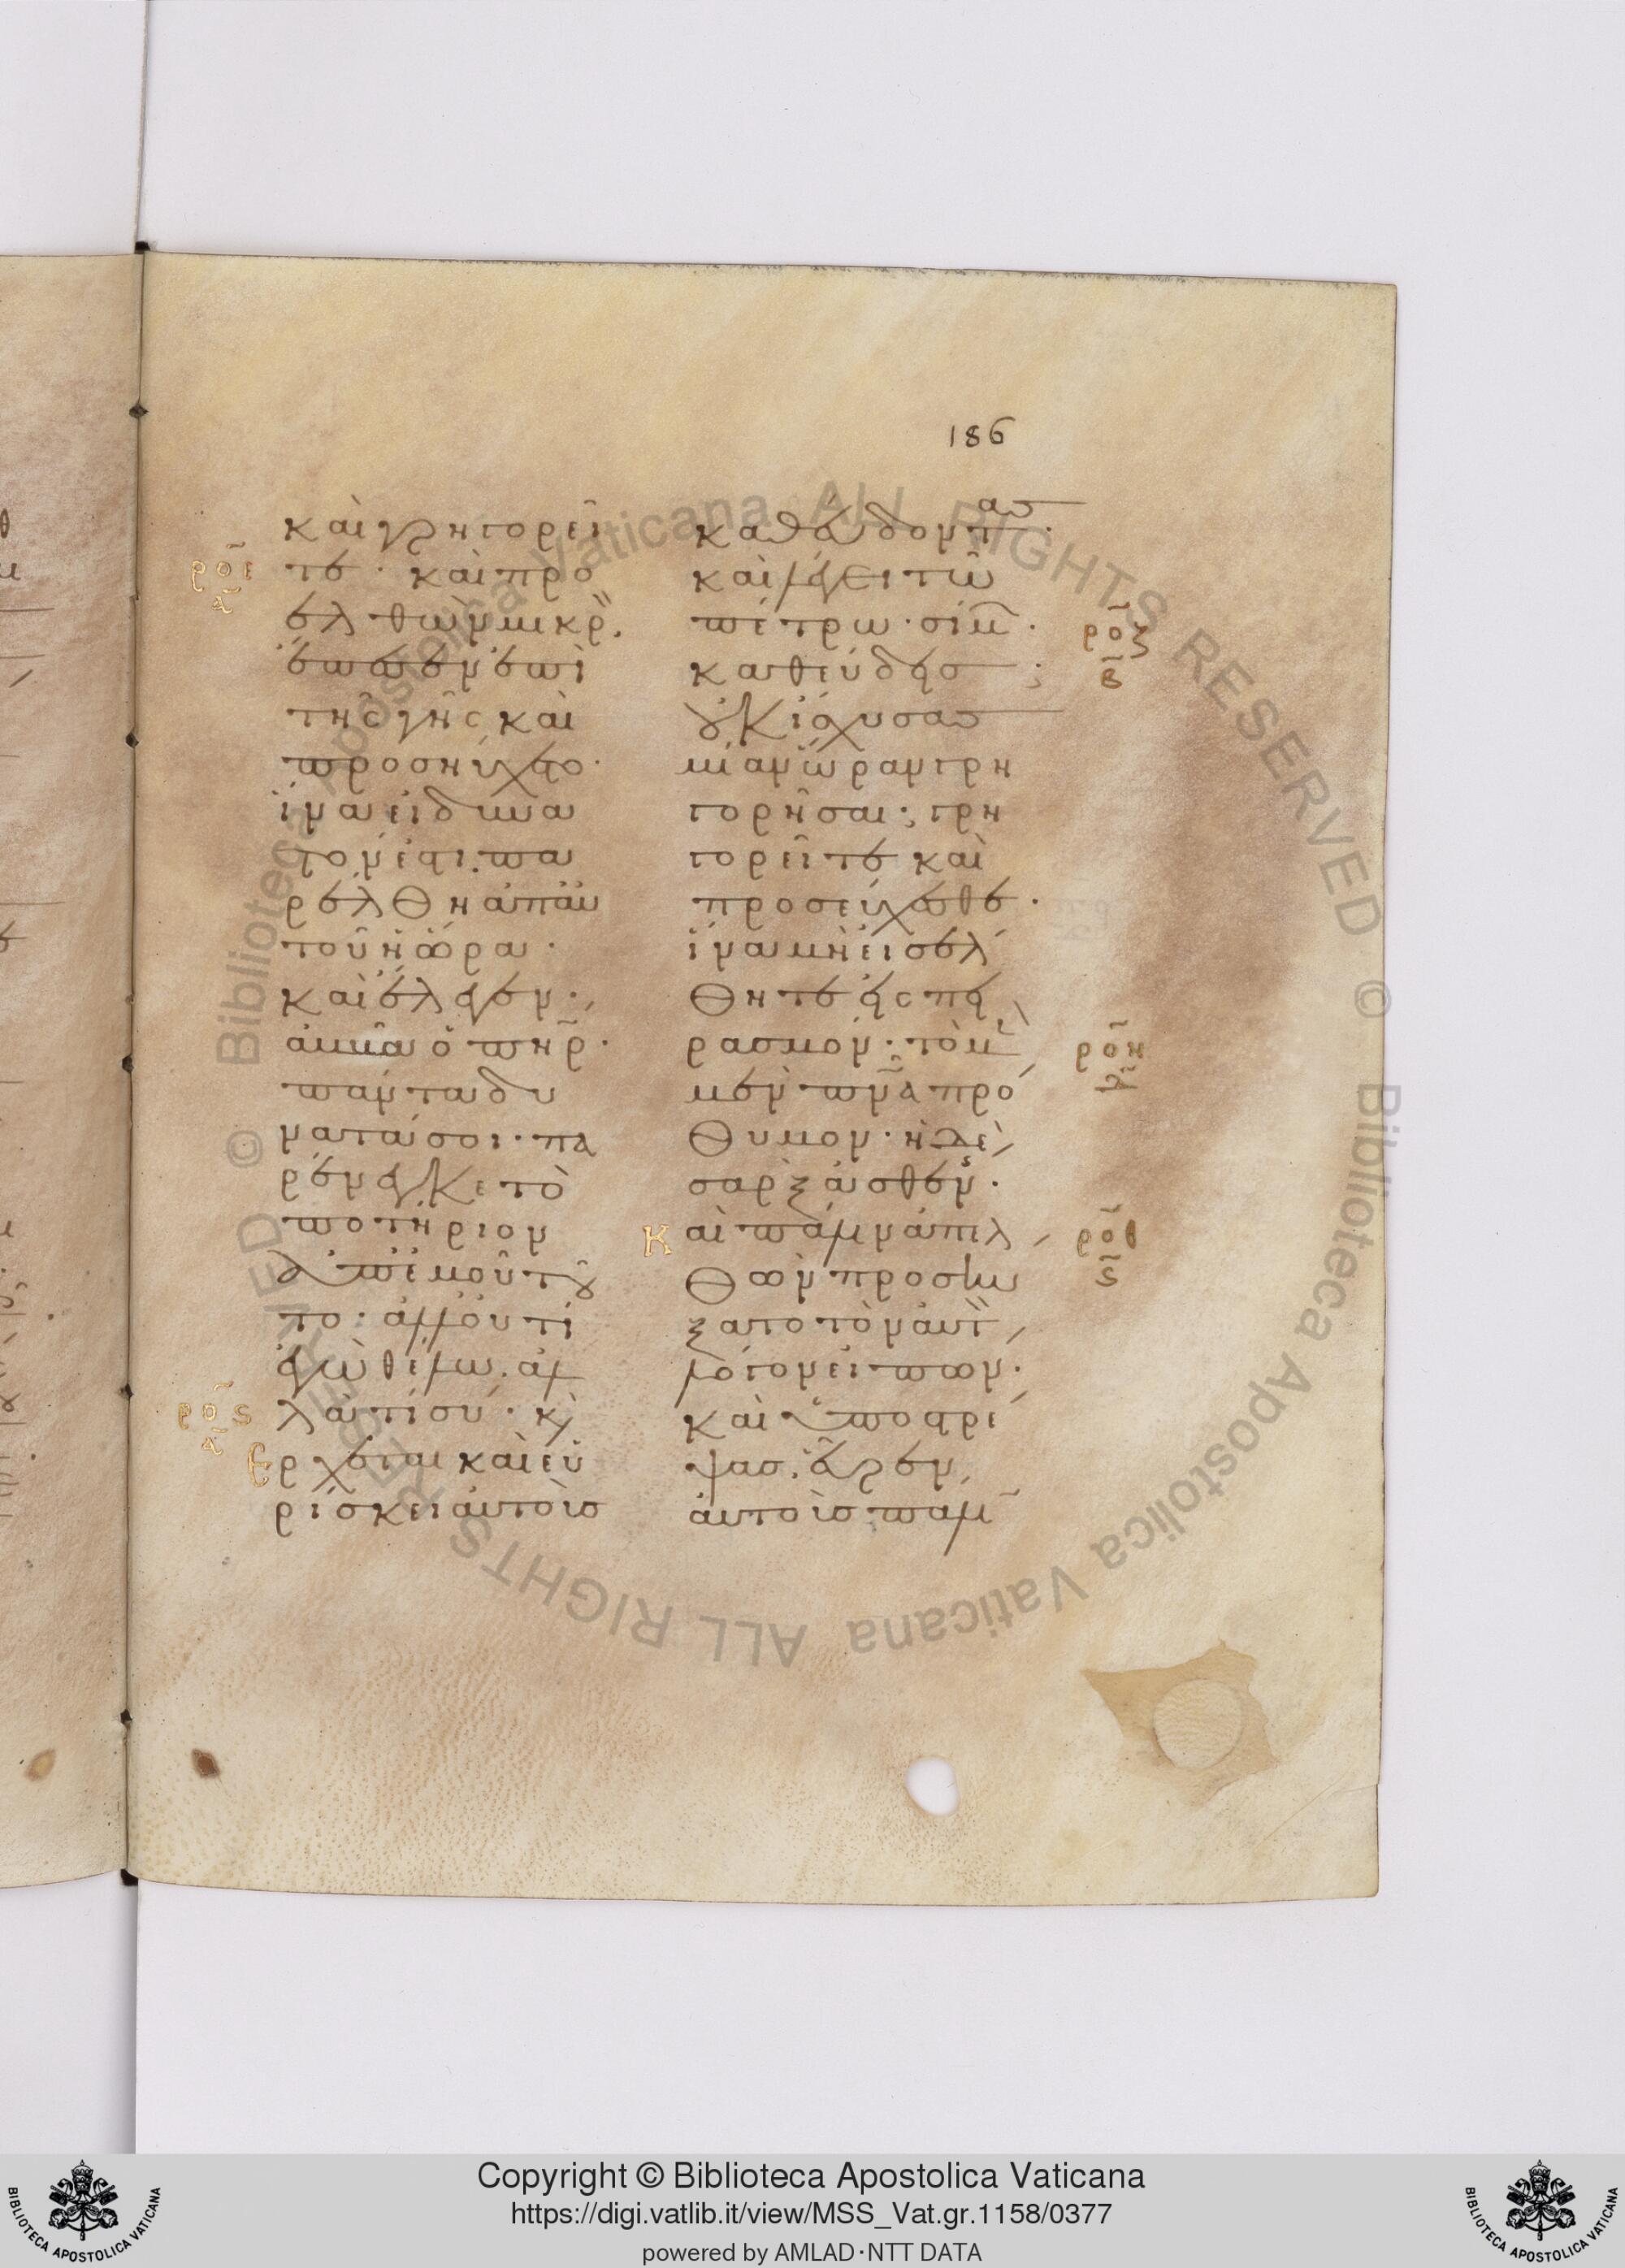 186
καὶ γρηγορεῖ
τε · καὶ προ
ελθὼν μικρ̏,
ἔπεσεν ἐπὶ
τῆς γῆς καὶ
προσηύχετο·
ἵνα εἰ δυνα
τόν ἐστι, πα
ρέλθη ἀπ' αὐ
τοῦ ἡ ὥρα ·
καὶ ἔλεγεν ·,
ἀββᾶ ὁ πη̅ρ ·
πάντα δυ
νατά σοι · πα
ρένεγκε τὸ
ποτήριον
ἀπ' ἐμοῦ τοῦ
το : ἀλλ' οὐ τί
ἐγὼ θέλω · ἀλ
λὰ τί σύ · κ(αὶ)
Ἔρχεται καὶ εὑ
ρίσκει αὐτοὺσ
καθεύδοντασ ·
καὶ λέγει τῶ
πέτρω · σίμ̅ ·
καθεύδεισ ;
οὐκ ἴσχυσασ
μίαν ὥραν γρη
γορῆσαι ; γρη
γορεῖτε καὶ
προσεύχεσθε ·
ἵνα μὴ εἰσέλ
θητε εἰς πει
ρασμόν · τὸ μ(ὲν)
μὲν πν̅α πρό
θυμον · ἡ δὲ
σὰρξ ἀσθεν(ής) ·
Καὶ πάλιν ἀπελ
θὼν προσηύ
ξατο τὸν αὐτ̏
λόγον εἰπών ·
καὶ ὑποστρέ
ψασ, εὗρεν
αὐτοὺσ πάλιν
ρο̅ε
α̅
ρο̅ϛ
α̅
ρο̅ζ
β̅
ρο̅η
δ̅
ρο̅θ
ϛ̅
Copyright © Biblioteca Apostolica Vaticana
https://digi.vatlib.it/view/MSS_Vat.gr.1158/0377
powered by AMLAD·NTT DATA
BIBLIOTECA APOSTOLICA VATICANA
BIBLIOTECA APOSTOLICA VATICANA
© Biblioteca Apostolica Vaticana ALL RIGHTS RESERVED © Biblioteca Apostolica Vaticana ALL RIGHTS RESERVED